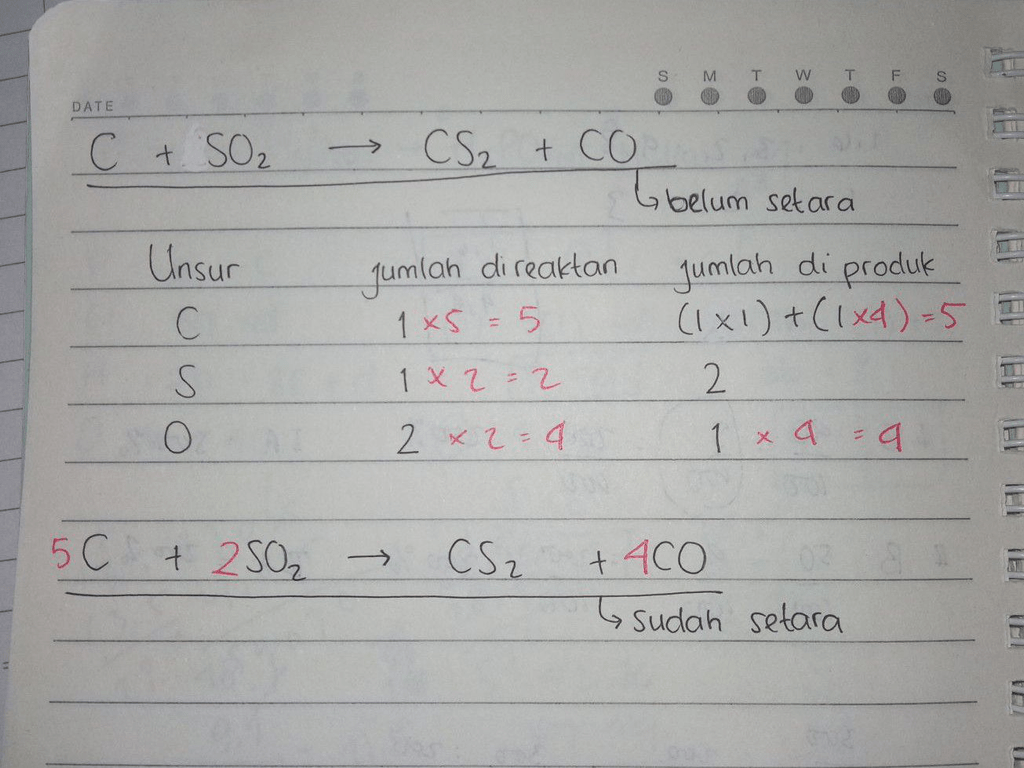 S M T W T F S
DATE
C + SO₂ → CS₂ + CO
↳ belum setara
Unsur jumlah direaktan jumlah di produk
C 1 x5 = 5 (1x1) + (1x4) = 5
S 1 x 2 = 2 2
O 2 x 2 = 4 1 x 4 = 4
5C + 2SO₂ → CS₂ + 4CO
↳ sudah setara